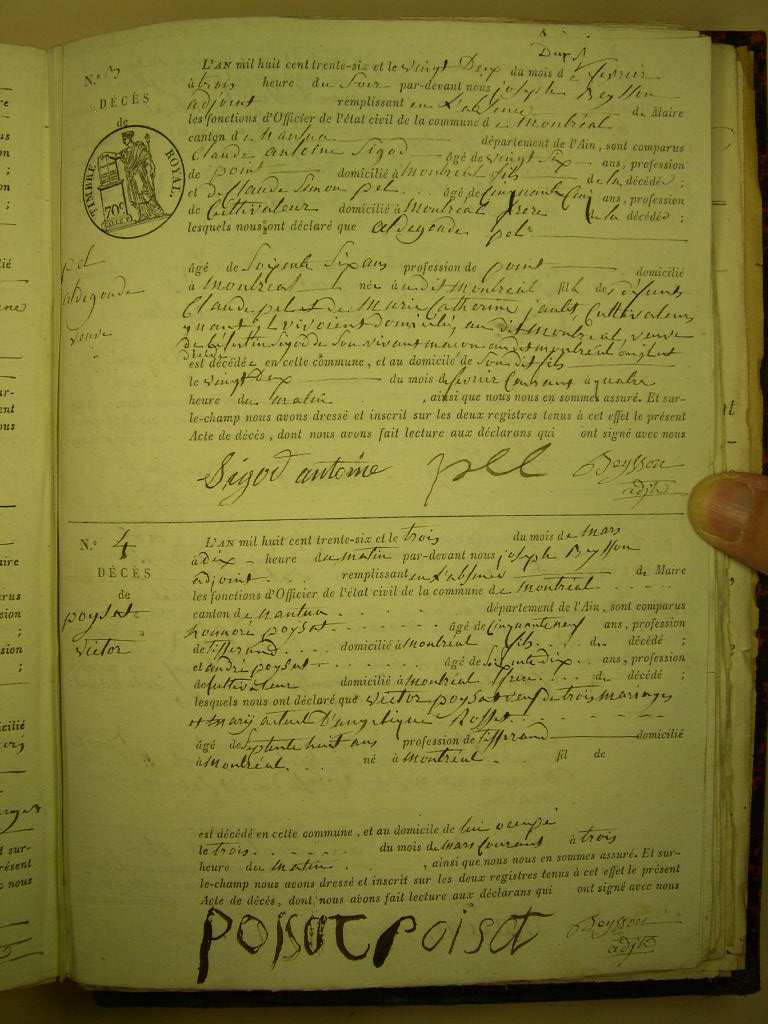 N.° 3
DÉCÈS
de
TIMBRE ROYAL.
70c
pel
aldegonde
veuve
L'AN mil huit cent trente-six et le vingt Deux du mois de fevrier
à trois heure du Soir par-devant nous joseph Beysson
adjoint remplissant en L'absence de Maire
les fonctions d'Officier de l'état civil de la commune de Montréal
canton de Nantua département de l'Ain, sont comparus
Claude antoine Sigod âgé de vingt Six ans, profession
de point domicilié à Montréal fils de la décédée ;
et de Claude Simon pel âgé de Cinquante Cinq ans, profession
de Cultivateur domicilié à Montréal frere de la décédée ;
lesquels nous ont déclaré que aldegonde pel
âgé de Soixente Six ans profession de point domicilié
à Montréal née à au dit Montréal fille de défunts
Claude pel et de Marie Catherine Cultivateurs
quant ils vivoient domiciliés au dit Montréal, veuve
de Sigod de Son vivant macon au dit montréal
est décédée en cette commune, et au domicile de Son dit fils
le vingt Deux du mois de fevrier Courant à quatre
heure du matin , ainsi que nous nous en sommes assuré. Et sur-
le-champ nous avons dressé et inscrit sur les deux registres tenus à cet effet le présent
Acte de décès, dont nous avons fait lecture aux déclarans qui ont signé avec nous
Sigod antoine pel Beysson
adjt
N.° 4
DÉCÈS
de
poysat
Victor
L'AN mil huit cent trente-six et le trois du mois de Mars
à dix heure du Matin par-devant nous joseph Beysson
adjoint remplissant en L'absence de Maire
les fonctions d'Officier de l'état civil de la commune de Montréal
canton de Nantua département de l'Ain, sont comparus
honnoré poysat âgé de Cinquante neuf ans, profession
de Tisserand domicilié à Montréal fils du décédé ;
et andré poysat âgé de Soixente dix ans, profession
de Cultivateur domicilié à Montréal frere du décédé ;
lesquels nous ont déclaré que Victor poysat veuf de trois mariages
et Mary actuel D'angelique Rosset
âgé de Septente huit ans profession de Tisserand domicilié
à Montréal né à Montréal fil de
est décédé en cette commune, et au domicile de lui occupé
le trois du mois de Mars Courant à trois
heure du Matin , ainsi que nous nous en sommes assuré. Et sur-
le-champ nous avons dressé et inscrit sur les deux registres tenus à cet effet le présent
Acte de décès, dont nous avons fait lecture aux déclarans qui ont signé avec nous
poisat poisat Beysson
adjt